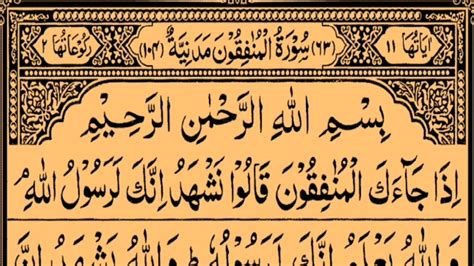 اٰيَاتُهَا ۱۱ (۶۳) سُوْرَةُ الْمُنٰفِقُوْنَ مَدَنِيَّةٌ (۱۰۴) رُكُوْعَاتُهَا ۲
بِسْمِ اللهِ الرَّحْمٰنِ الرَّحِيْمِ
اِذَا جَآءَكَ الْمُنٰفِقُوْنَ قَالُوْا نَشْهَدُ اِنَّكَ لَرَسُوْلُ اللهِ ۘ
وَاللهُ يَعْلَمُ اِنَّكَ لَرَسُوْلُهٗ ؕ وَاللهُ يَشْهَدُ اِنَّ